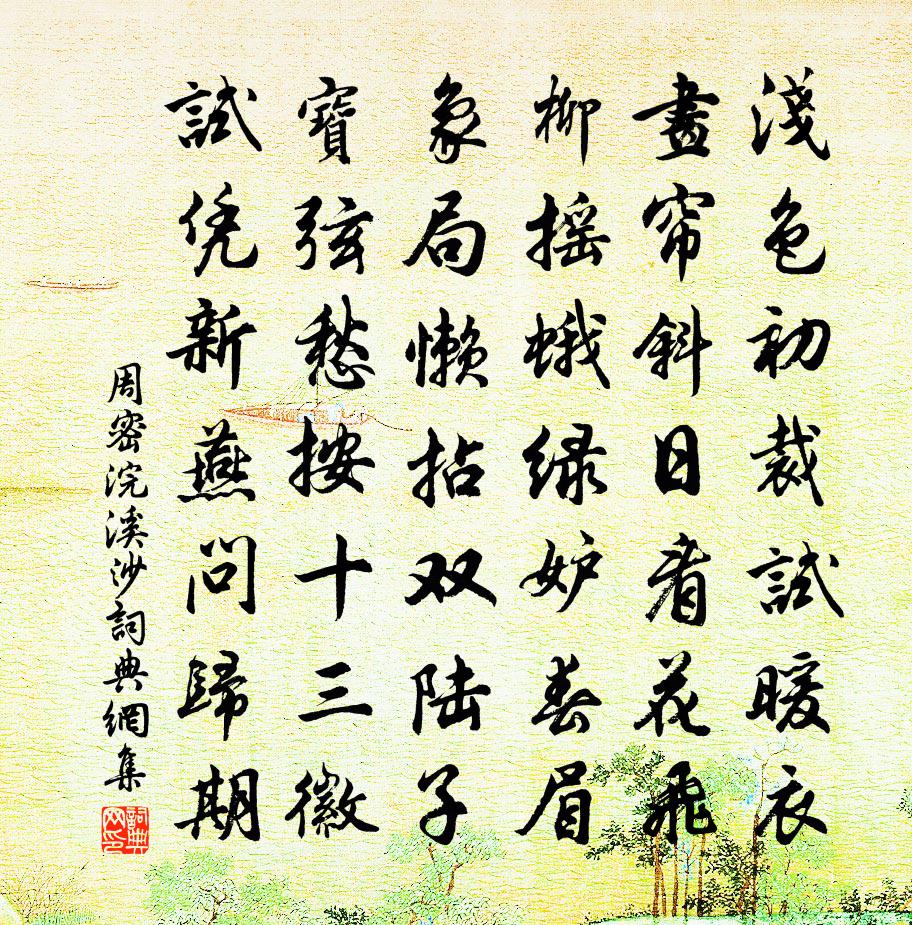 淺色初裁試暖衣
畫帘斜日看花飛
柳摇蛾绿妒春眉
象局懒拈双陆子
寶弦愁按十三徽
試凭新燕問歸期
周密浣溪沙詞典網集
詞典网印